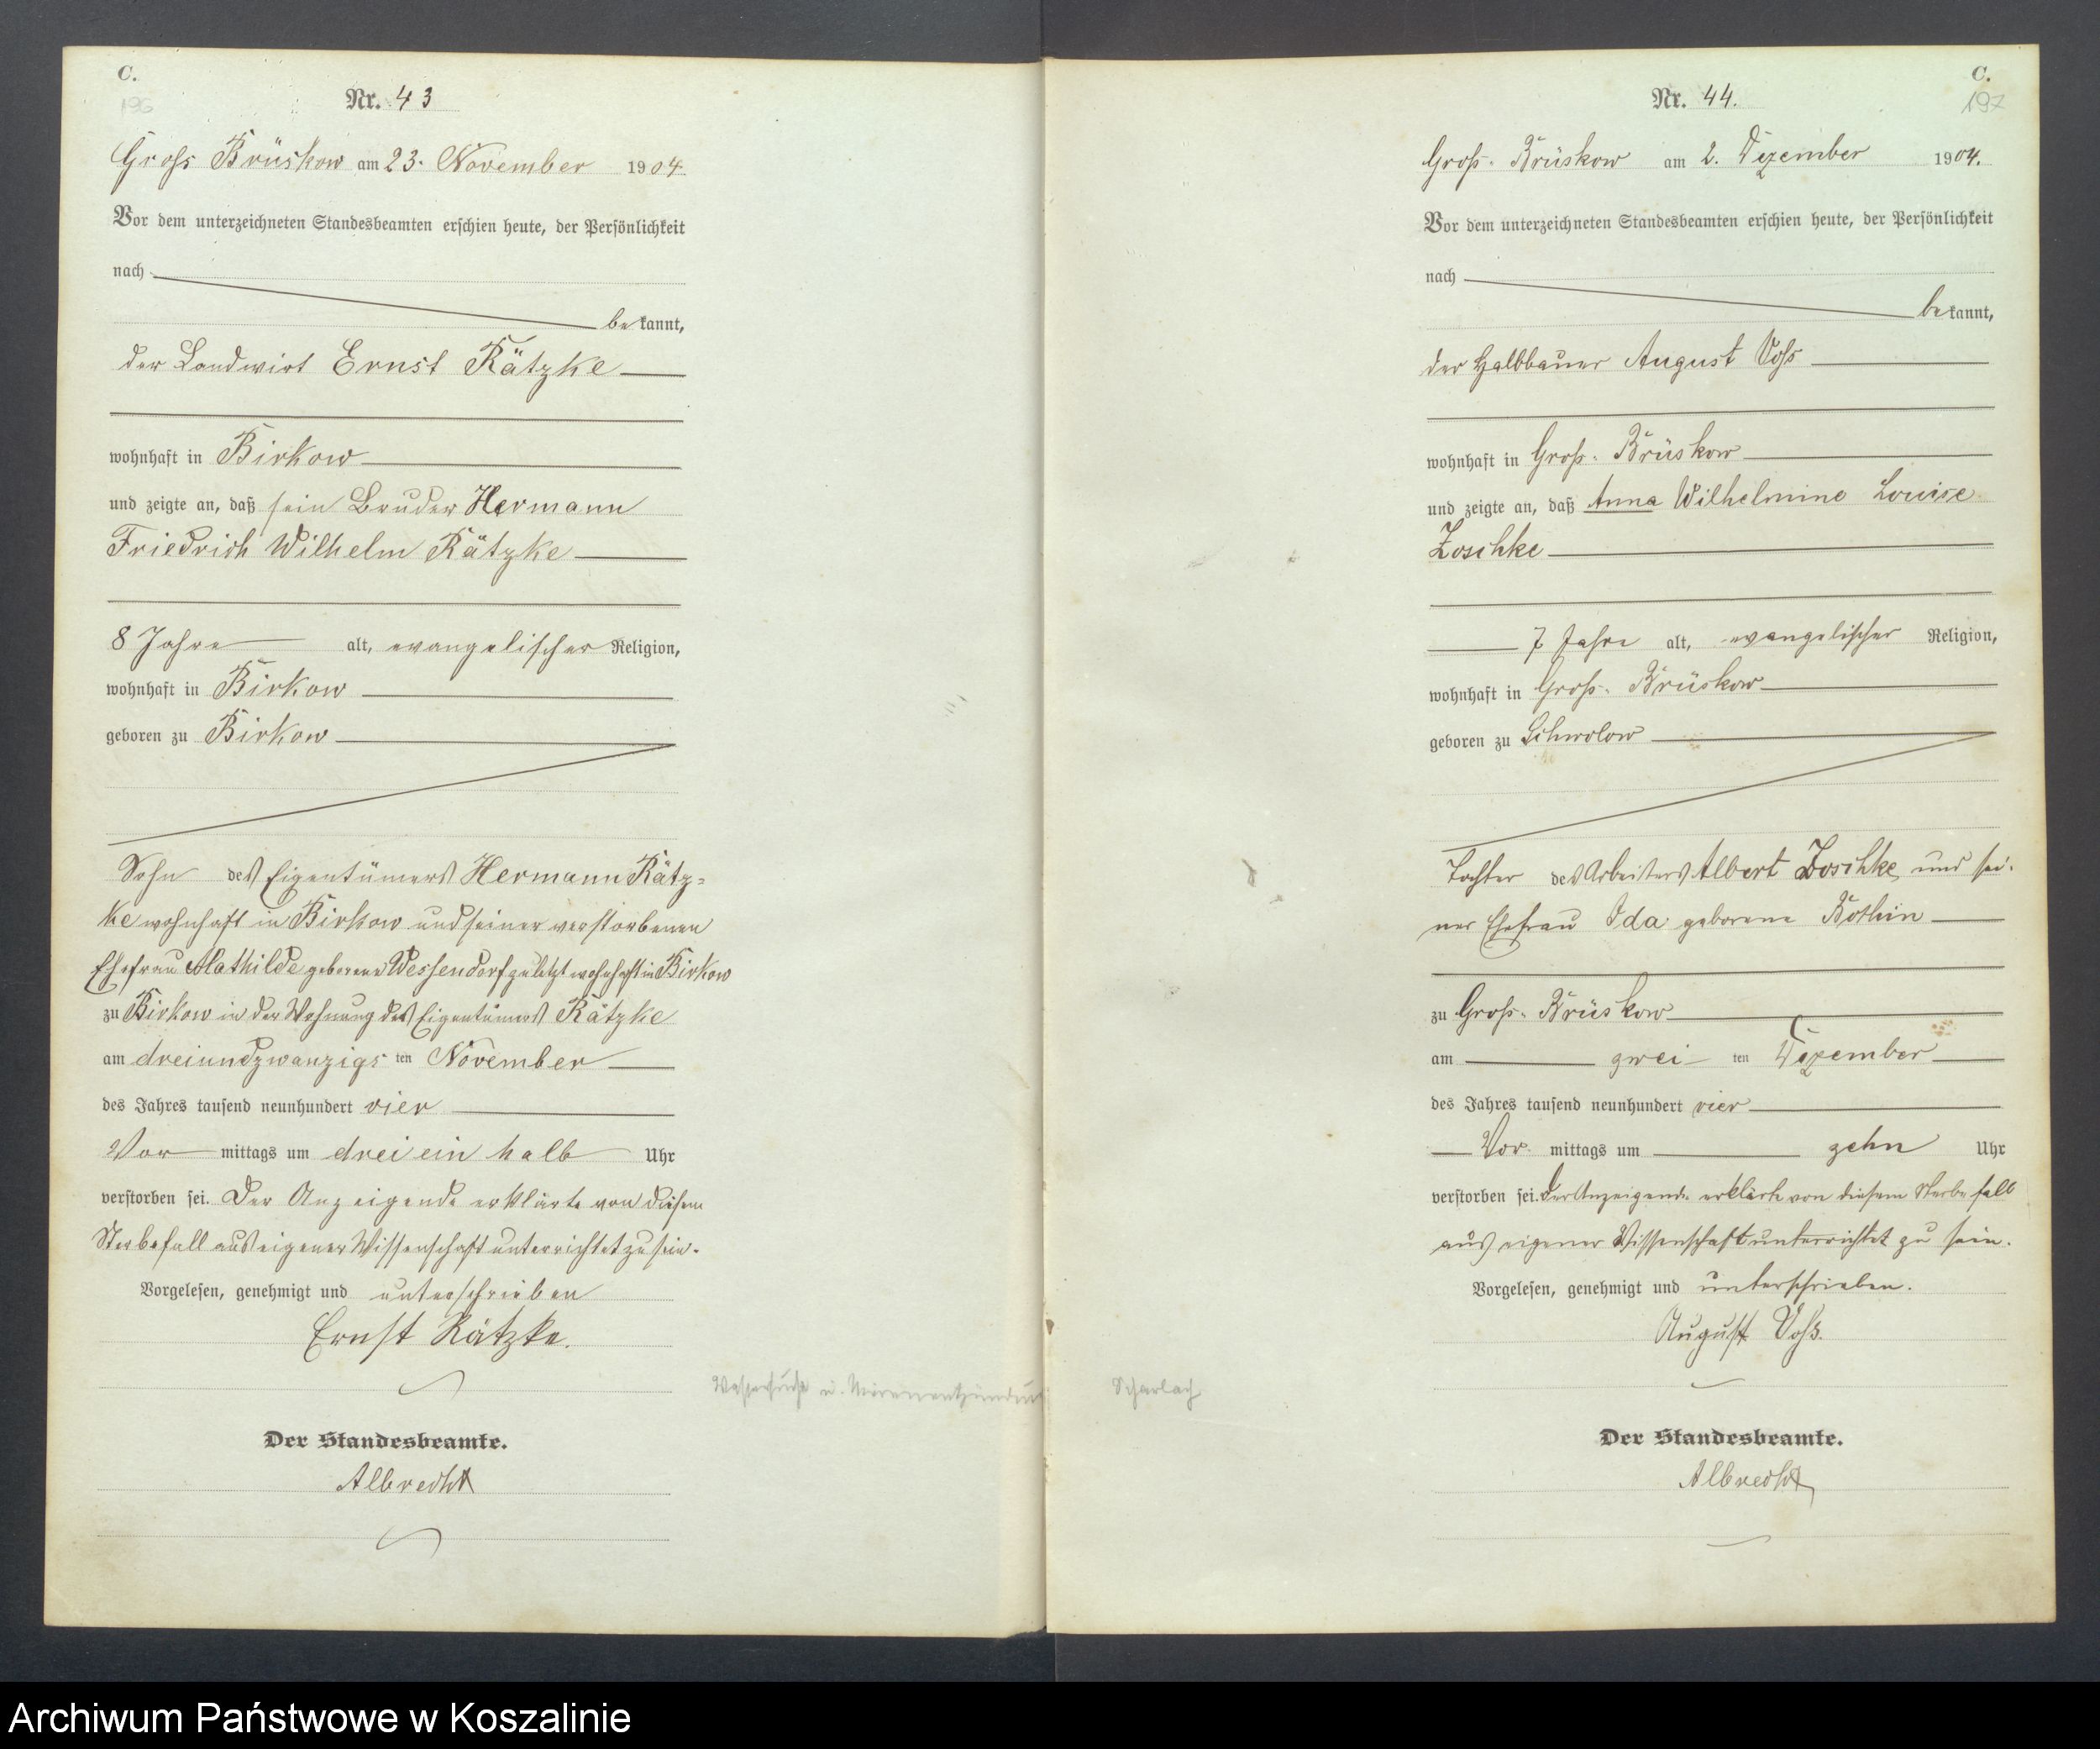 C.
196
Nr. 43
Gross Brüskow am 23. November 1904.
Vor dem unterzeichneten Standesbeamten erschien heute, der Persönlichkeit
nach
bekannt,
der Landwirt Ernst Rätzke
wohnhaft in Birkow
und zeigte an, daß sein Bruder Hermann
Friedrich Wilhelm Rätzke
8 Jahre alt, evangelischer Religion,
wohnhaft in Birkow
geboren zu Birkow
Sohn des Eigentümers Hermann Rätz=
ke wohnhaft in Birkow und seiner verstorbenen
Ehefrau Mathilde geborene Wessendorf zuletzt wohnhaft in Birkow
zu Birkow in der Wohnung des Eigentümers Rätzke
am dreiundzwanzigs ten November
des Jahres tausend neunhundert vier
Vor mittags um drei ein halb Uhr
verstorben sei. Der Anzeigende erklärte von diesem
Sterbefall aus eigener Wissenschaft unterrichtet zu sein.
Vorgelesen, genehmigt und unterschrieben
Ernst Rätzke.
Wassersucht u. Nierenentzündung
Der Standesbeamte.
Albrecht
C.
197
Nr. 44.
Groß-Brüskow am 2. Dezember 1904.
Vor dem unterzeichneten Standesbeamten erschien heute, der Persönlichkeit
nach
bekannt,
der Halbbauer August Voß
wohnhaft in Groß-Brüskow
und zeigte an, daß Anna Wilhelmine Louise
Zoschke
7 Jahre alt, evangelischer Religion,
wohnhaft in Groß-Brüskow
geboren zu Schwolow
Tochter des Arbeiters Albert Zoschke und sei-
ner Ehefrau Ida geborene Bothin
zu Groß-Brüskow
am zwei ten Dezember
des Jahres tausend neunhundert vier
Vor mittags um zehn Uhr
verstorben sei. Der Anzeigende erklärte von diesem Sterbefall
aus eigener Wissenschaft unterrichtet zu sein.
Vorgelesen, genehmigt und unterschrieben.
August Voß.
Scharlach
Der Standesbeamte.
Albrecht
Archiwum Państwowe w Koszalinie